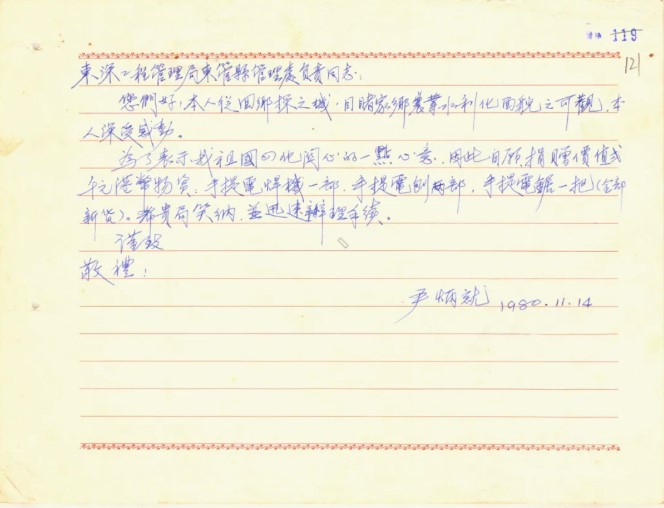 119
121
東深工程管理局東莞縣管理處負責同志:
您們好,本人從回鄉探之城,目睹家鄉農業水利化面貌之可觀,本
人深受感動。
為了表示我祖國四化関心的一點心意,因此自願捐贈價值弍
千元港幣物資:手提電焊機一部,手提電刨两部,手提電鋸一把(全部
新貨)。希貴局笑納,並迅速辦理手續。
謹致
敬禮!
尹炳就 1980.11.14